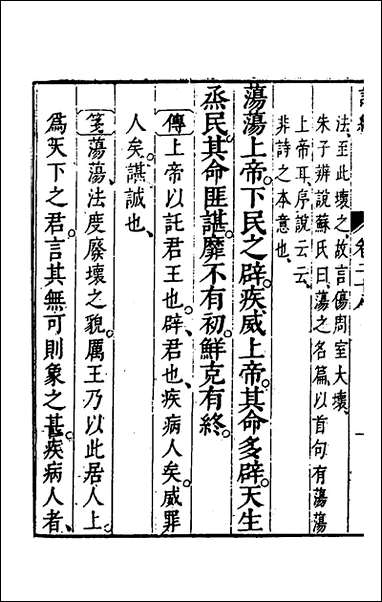 法至此壞之故言傷周室大壞
朱子辨說蘇氏曰蕩之名篇以首句有蕩蕩
上帝耳序說云云
非詩之本意也
蕩蕩上帝下民之辟疾威上帝其命多辟天生
烝民其命匪諶靡不有初鮮克有終
傳上帝以託君王也辟君也疾病人矣威罪
人矣諶誠也
箋蕩蕩法度廢壞之貌厲王乃以此居人上
爲天下之君言其無可則象之甚疾病人者